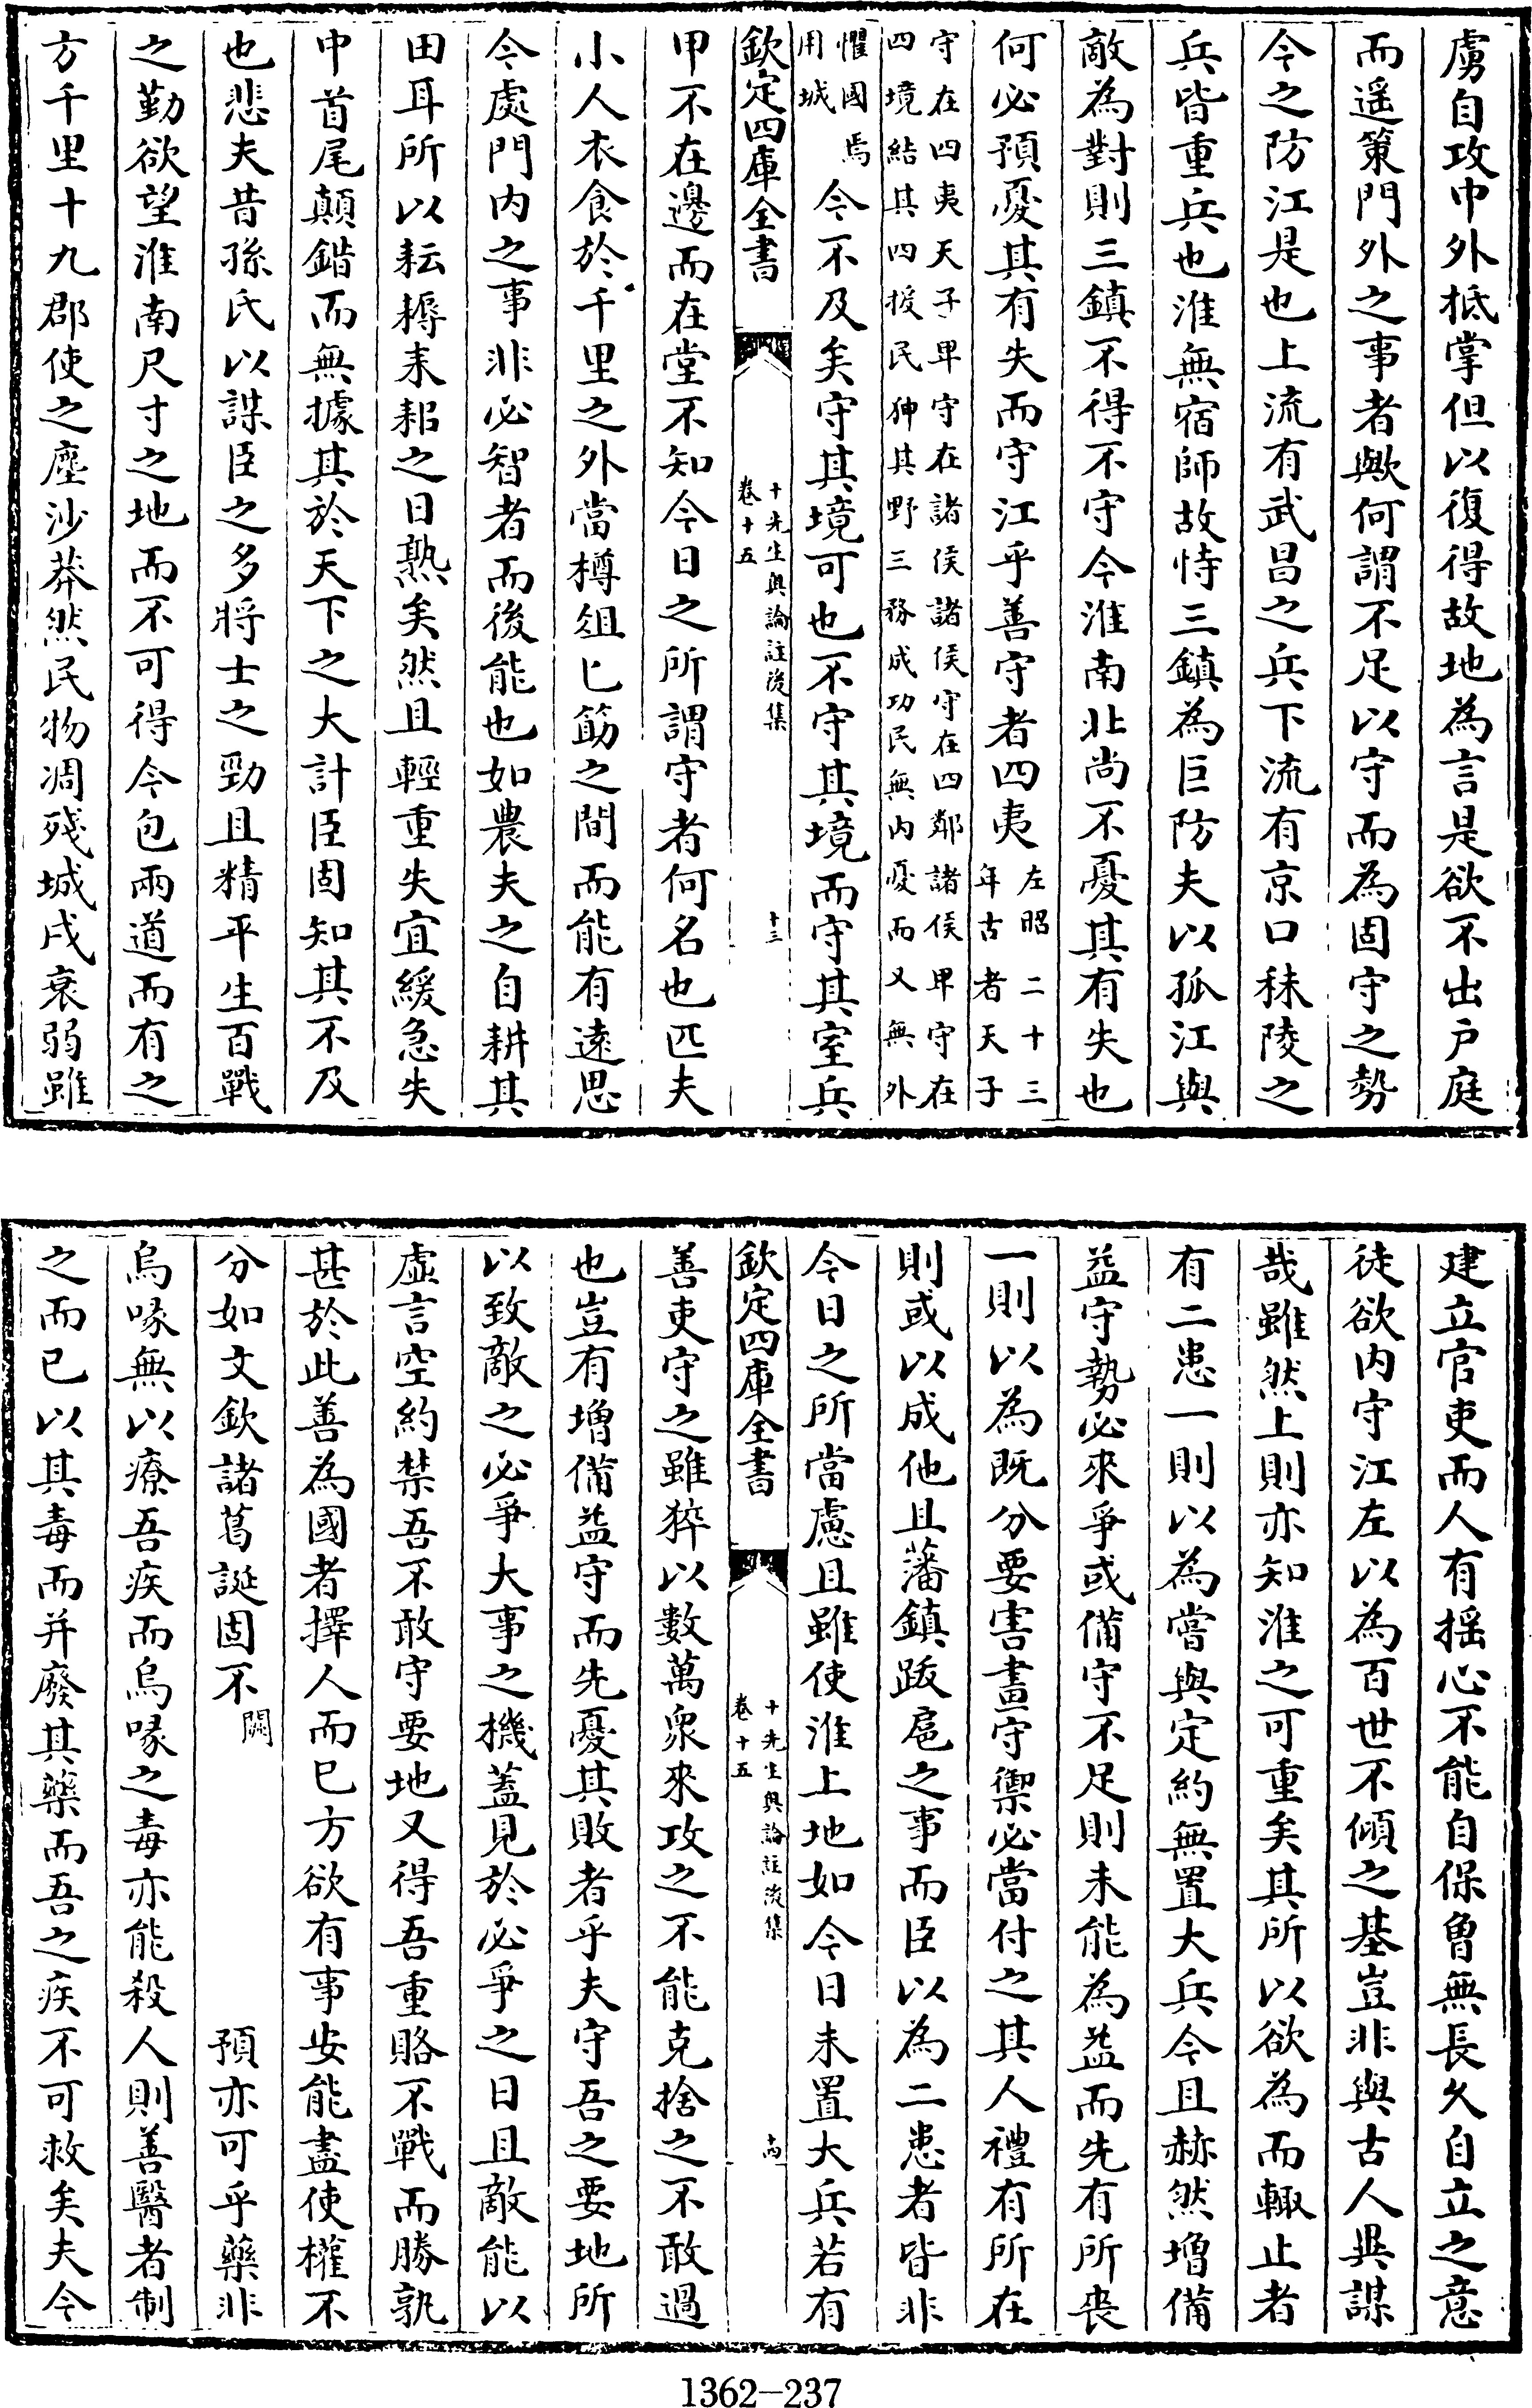 虜自攻巾外抵掌但以復得故地為言是欲不出戶庭
而遥策門外之事者歟何謂不足以守而為固守之勢
今之防江是也上流有武昌之兵下流有京口秣陵之
兵皆重兵也淮無宿師故恃三鎮為巨防夫以孤江與
敵為對則三鎮不得不守今淮南北尚不憂其有失也
何必預憂其有失而守江乎善守者四夷左昭二十三
年古者天子
守在四夷天子卑守在諸侯諸侯守在四鄰諸侯卑守在
四境結其四援民狎其野三務成功民無内憂而又無外
懼國焉
用城今不及矣守其境可也不守其境而守其室兵
欽定四庫全書
十先生輿論註後集
卷十五
十三
甲不在邊而在堂不知今日之所謂守者何名也匹夫
小人衣食於千里之外當樽俎匕筯之間而能有遠思
今處門内之事非必智者而後能也如農夫之自耕其
田耳所以耘耨耒耜之日熟矣然且輕重失宜緩急失
中首尾顛錯而無據其於天下之大計臣固知其不及
也悲夫昔孫氏以謀臣之多將士之勁且精平生百戰
之勤欲望淮南尺寸之地而不可得今包兩道而有之
方千里十九郡使之塵沙莽然民物凋殘城戍衰弱雖
建立官吏而人有揺心不能自保曾無長久自立之意
徒欲内守江左以為百世不傾之基豈非與古人異謀
哉雖然上則亦知淮之可重矣其所以欲為而輙止者
有二患一則以為嘗與定約無置大兵今且赫然増備
益守勢必來爭或備守不足則未能為益而先有所喪
一則以為既分要害畫守禦必當付之其人禮有所在
則或以成他且藩鎮跋扈之事而臣以為二患者皆非
今日之所當慮且雖使淮上地如今日未置大兵若有
欽定四庫全書
十先生輿論註後集
卷十五
十四
善吏守之雖猝以數萬衆來攻之不能克捨之不敢過
也豈有増備益守而先憂其敗者乎夫守吾之要地所
以致敵之必爭大事之機蓋見於必爭之日且敵能以
虛言空約禁吾不敢守要地又得吾重賂不戰而勝孰
甚於此善為國者擇人而已方欲有事安能盡使權不
分如文欽諸葛誕固不闕預亦可乎藥非
烏喙無以療吾疾而烏喙之毒亦能殺人則善醫者制
之而已以其毒而并廢其藥而吾之疾不可救矣夫今
1362-237